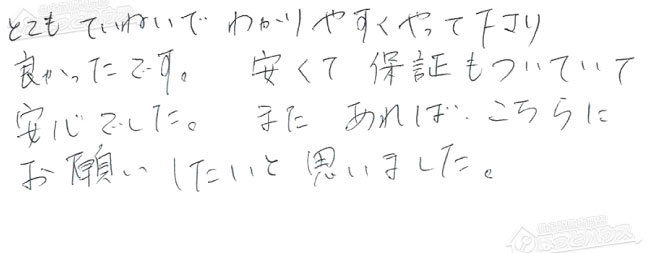 とてもていねいで わかりやすくやって下さり
良かったです。 安くて 保証もついていて
安心でした。 また あれば、こちらに
お願いしたいと思いました。